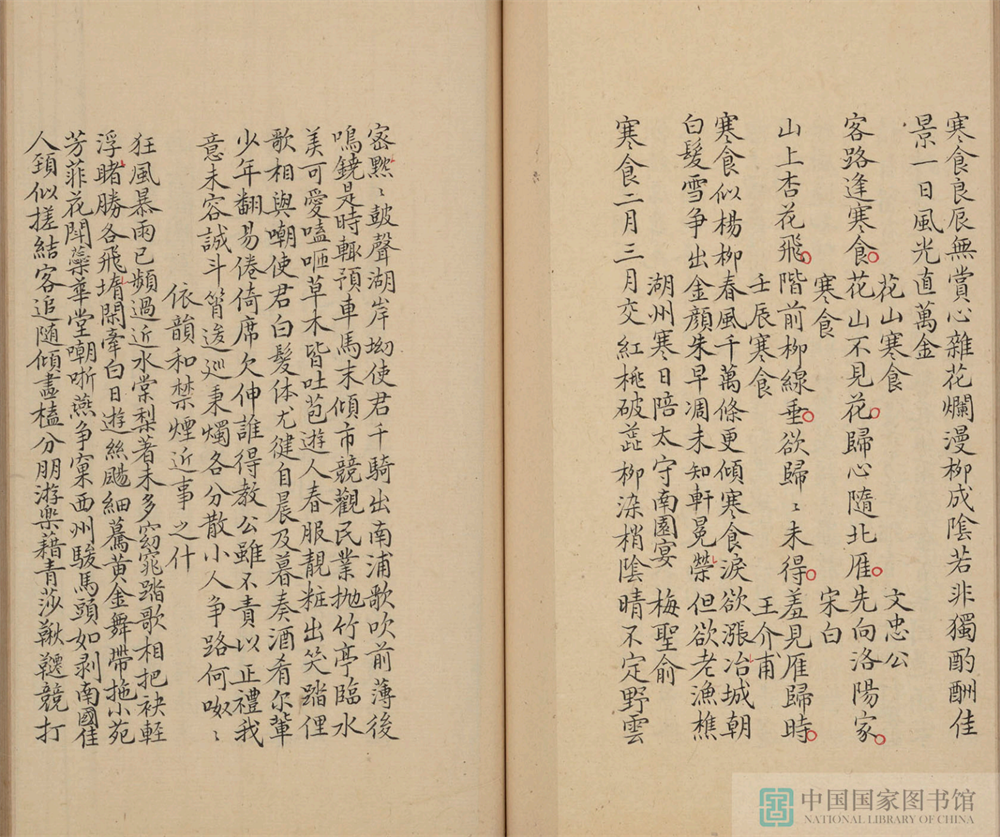 寒食良辰無賞心雜花爛漫柳成陰若非獨酌酬佳
景一日風光直萬金
花山寒食 文忠公
客路逢寒食花山不見花歸心隨北雁先向洛陽家
寒食 宋白
山上杏花飛階前柳線垂欲歸〻未得羞見雁歸時
壬辰寒食 王介甫
寒食似楊柳春風千萬條更傾寒食淚欲漲冶城朝
白髮雪争出金顏朱早凋未知軒冕榮但欲老漁樵
湖州寒日陪太守南園宴 梅聖俞
寒食二月三月交紅桃破蘂柳染梢陰晴不定野雲
密黙〻皷聲湖岸坳使君千騎出南浦歌吹前薄後
鳴鐃是時輙預車馬末傾市競觀民業抛竹亭臨水
美可愛嗑咂草木皆吐苞遊人春服靚粧出笑踏俚
歌相與嘲使君白髮体尤健自晨及暮奏酒肴尔輩
少年翻易倦倚席欠伸誰得教公雖不責以正禮我
意未容誠斗筲逡巡秉燭各分散小人争路何呶〻
依韻和禁煙近事之什
狂風暴雨已頻過近水棠梨著未多窈窕踏歌相把袂輕
浮賭勝各飛堶閑牽白日遊絲颺細蓦黄金舞帶拖小苑
芳菲花鬥蘂華堂嘲哳燕争窠西州駿馬頭如剥南國佳
人頸似搓結客追隨傾盡榼分朋游樂藉青莎鞦韆競打
中国国家图书馆
NATIONAL LIBRARY OF CHINA